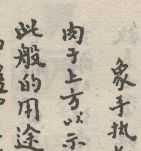 象手执
肉于上方以示
此般的用途